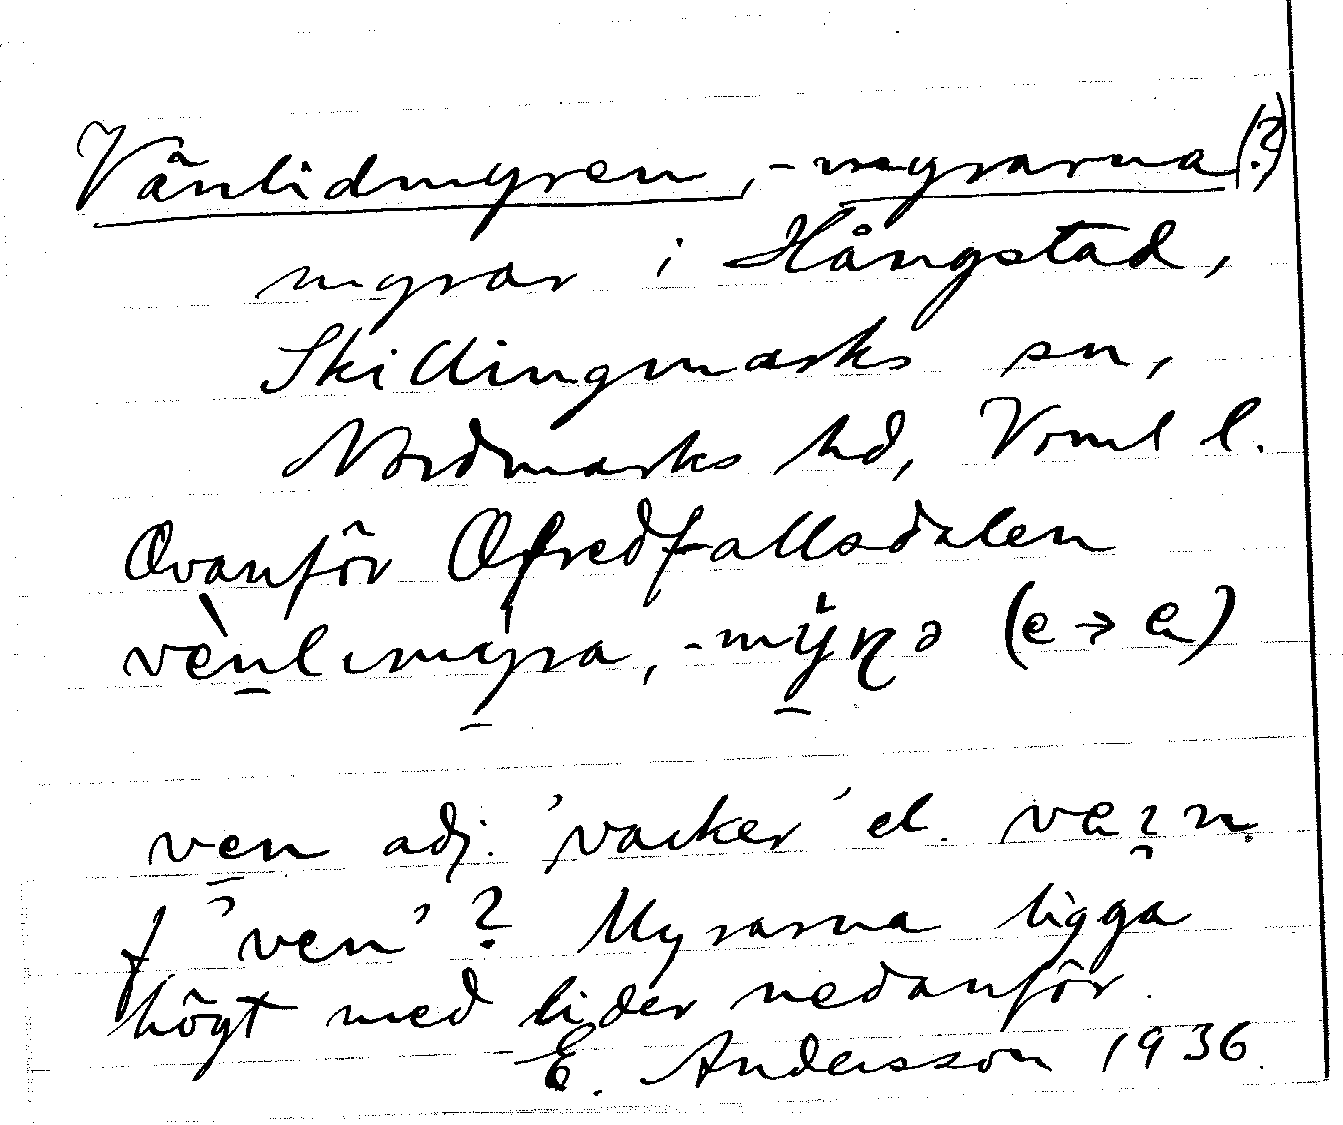 Vänlidmyren, -myrarna (?)
myrar i Hångstad,
Skillingmarks sn,
Nordmarks hd, Vrml l.
Ovanför Ofredfallsdalen
vènlımyra, -mÿɳə (e → e̱)
ven adj. 'vacker' el. ve̱ɿn.
f 'ven'? Myrarna ligga
högt med lider nedanför.
E. Andersson 1936